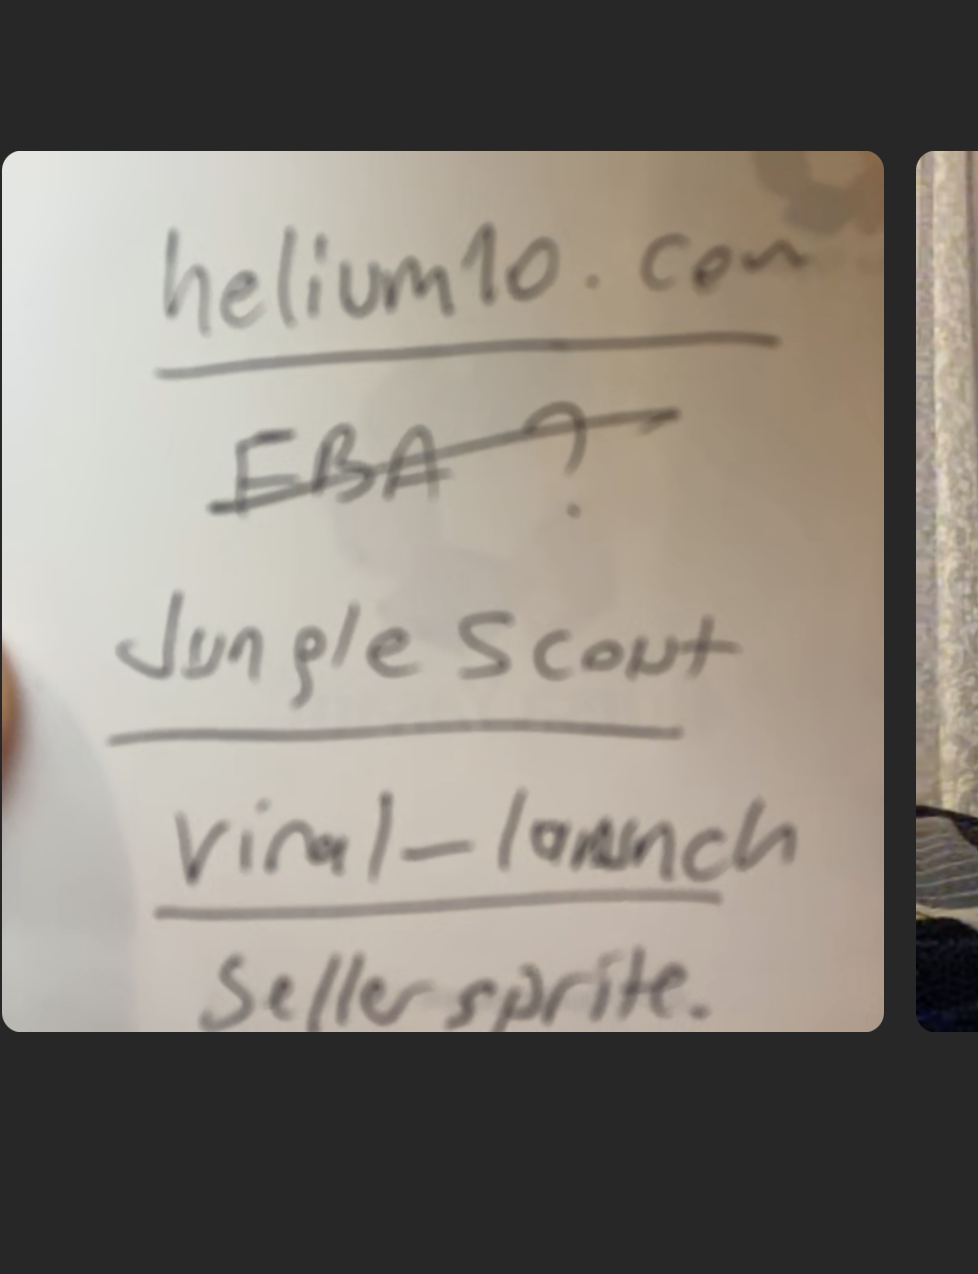 helium10.com
EBA ?
Jungle Scout
viral-launch
Seller sprite.